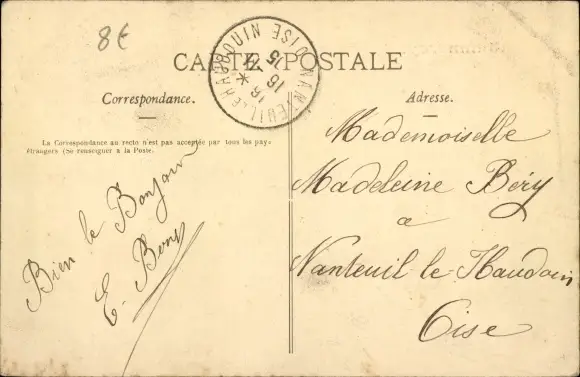 8€
NANTEUIL LE HAUDOUIN
OISE
16
16
15
CARTE POSTALE
Correspondance.
Adresse.
La Correspondance au recto n'est pas acceptée par tous les pays
étrangers (Se renseigner à la Poste.
Bien le Bonjour
E. Bony
Mademoiselle
Madeleine Béry
a
Nanteuil le Haudoin
Oise